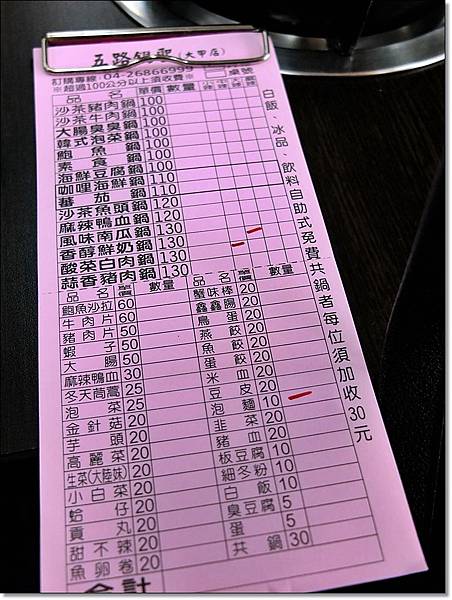 五路鍋聖(大甲店)
訂購專線:04-26866999 桌號
※超過100公分以上須收費※
品名 單價 數量
沙茶豬肉鍋 100
沙茶牛肉鍋 100
大腸臭臭鍋 100
韓式泡菜鍋 100
鮑魚鍋 100
素食鍋 100
海鮮豆腐鍋 100
咖哩海鮮鍋 110
番茄鍋 110
沙茶魚頭鍋 120
麻辣鴨血鍋 120
風味南瓜鍋 130
香醇鮮奶鍋 130
酸菜白肉鍋 130
蒜香豬肉鍋 130
白飯、冰品、飲料自助式免費共鍋者每位須加收30元
品名 單價 數量 品名 單價 數量
鮑魚沙拉 60 蟹味棒 20
牛肉片 60 鑫鑫腸 20
豬肉片 50 鳥蛋 20
蝦子 50 燕餃 20
大腸 50 魚餃 20
麻辣鴨血 30 蛋餃 20
冬天茼蒿 25 米血 20
泡菜 25 豆皮 20
金針菇 20 泡麵 10
芋頭 20 韭菜 20
高麗菜 20 豬血 20
生菜(大陸妹) 20 板豆腐 10
小白菜 20 細冬粉 10
蛤仔 20 白飯 10
貢丸 20 臭豆腐 5
甜不辣 20 蛋 5
魚卵卷 20 共鍋 30
合計